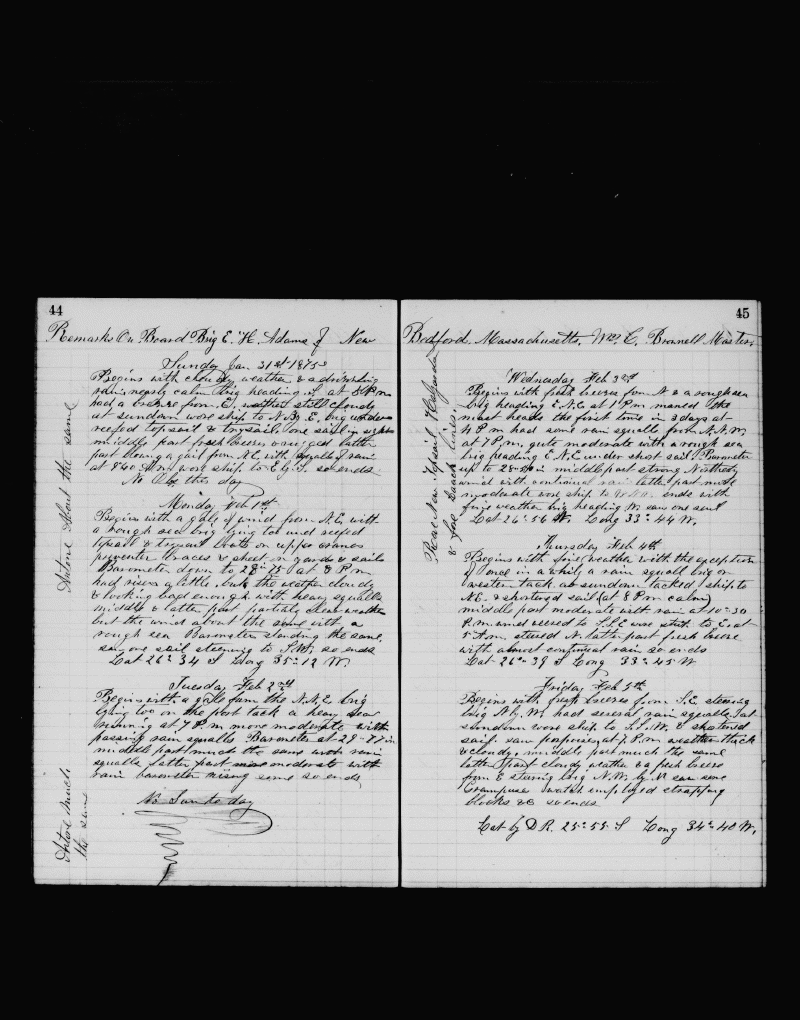 44
Remarks On Board Brig E. H. Adams of New
Sunday Jan. 31st 1875
Begins with cloudy weather & a drizzling
rain, nearly calm brig heading S. at 8 Pm
had a breeze from E. weather still cloudy
at sundown wore ship to N by E. brig under
reefed topsail & trysail, one sail in sight
middle part fresh breeze & rugged latter
part blowing a gail from N.E. with squalls of rain
at 8.40 Am wore ship to E by S. so ends
No Obs this day
Monday Feb 1st
Begins with a gale of wind from N.E. with
a rough sea brig lying too under reefed
topsail & trysail boats on upper cranes
preventer braces & sheet on yards & sails
Barometer down to 28-75 at 8 P m
had risen a little, but the weather cloudy
& looking bad enough with heavy squalls
middle & latter part partialy clear weather
but the wind about the same with a
rough sea Barometer standing the same,
saw one sail steering to S.W. so ends
Lat 26° 34 S Long 35° 12 W.
Tuesday Feb 2nd
Begins with a gale from the N.N.E. brig
lying too on the port tack a heavy sea
running at 7 P. m more moderate with
passing rain squalls Barometer at 28-75 in
middle part much the same with rain
squalls latter part more moderate with
rain barometer rising some so ends
No Sun to day
Antone About the same
Antone much
the same
45
Bedford, Massachusetts, Wm C. Brownell Master,
Wednesday Feb 3rd
Begins with fresh breeze from N & a rough sea
brig heading E.N.E. at 1 P.m. maned the
mast heads the first time in 3 days at
4 P m had some rain squalls from N.N.W.
at 7 P.m. quite moderate with a rough sea
brig heading E.N.E under short sail Barometer
up to 28-50 in middle part strong Northerly
wind with continual rain latter part more
moderate wore ship to ends with
fine weather brig heading W. saw one sail
Lat 26° 56 Long 33° 44 W,
Thursday Feb 4th
Begins with fine weather with the exception
of once in a while a rain squall brig on
western tack at sundown tacked ship to
N.E. & shortened sail (at 8 P.m calm)
middle part moderate with rain at 10-30
P.m. wind veered to S.S.E wore ship to E. at
5 A.m, steered N. latter part fresh breeze
with almost continual rain so ends
Lat 26° 39 S Long 33° 45 W
Friday Feb 5th
Begins with fresh breezes from S.E. steering
brig N by W, had several rain squalls, at
sundown wore ship to & shortened
sail saw porpoises, at 7 P.m weather thick
& cloudy, middle part much the same
latter part cloudy weather & a fresh breeze
from E steering brig N.W. by N saw some
Grampuses watch employed strapping
blocks &c so ends
Lat by D R. 25° 55 S Long 34° 40 W,
New Topsail Halyards
& fore brace lines